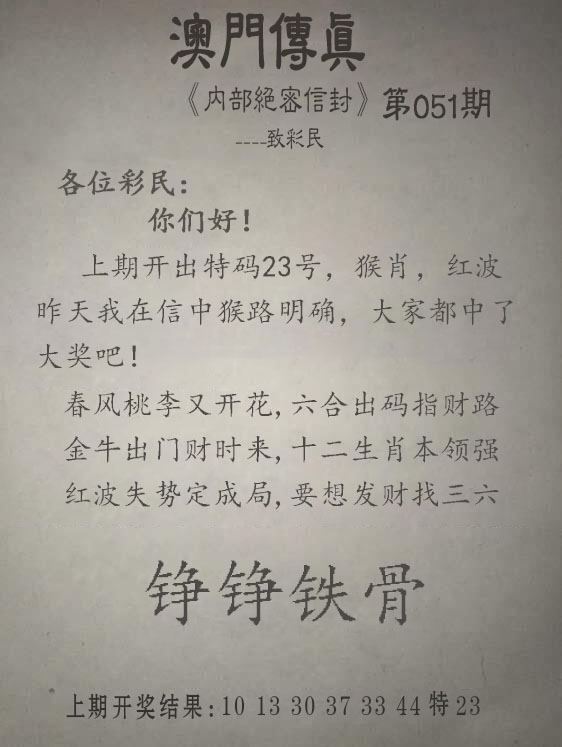 澳門傳真
《内部絕密信封》第051期
----致彩民
各位彩民：
你们好！
上期开出特码23号，猴肖，红波
昨天我在信中猴路明确，大家都中了
大奖吧！
春风桃李又开花,六合出码指财路
金牛出门财时来,十二生肖本领强
红波失势定成局,要想发财找三六
铮铮铁骨
上期开奖结果:10 13 30 37 33 44 特23